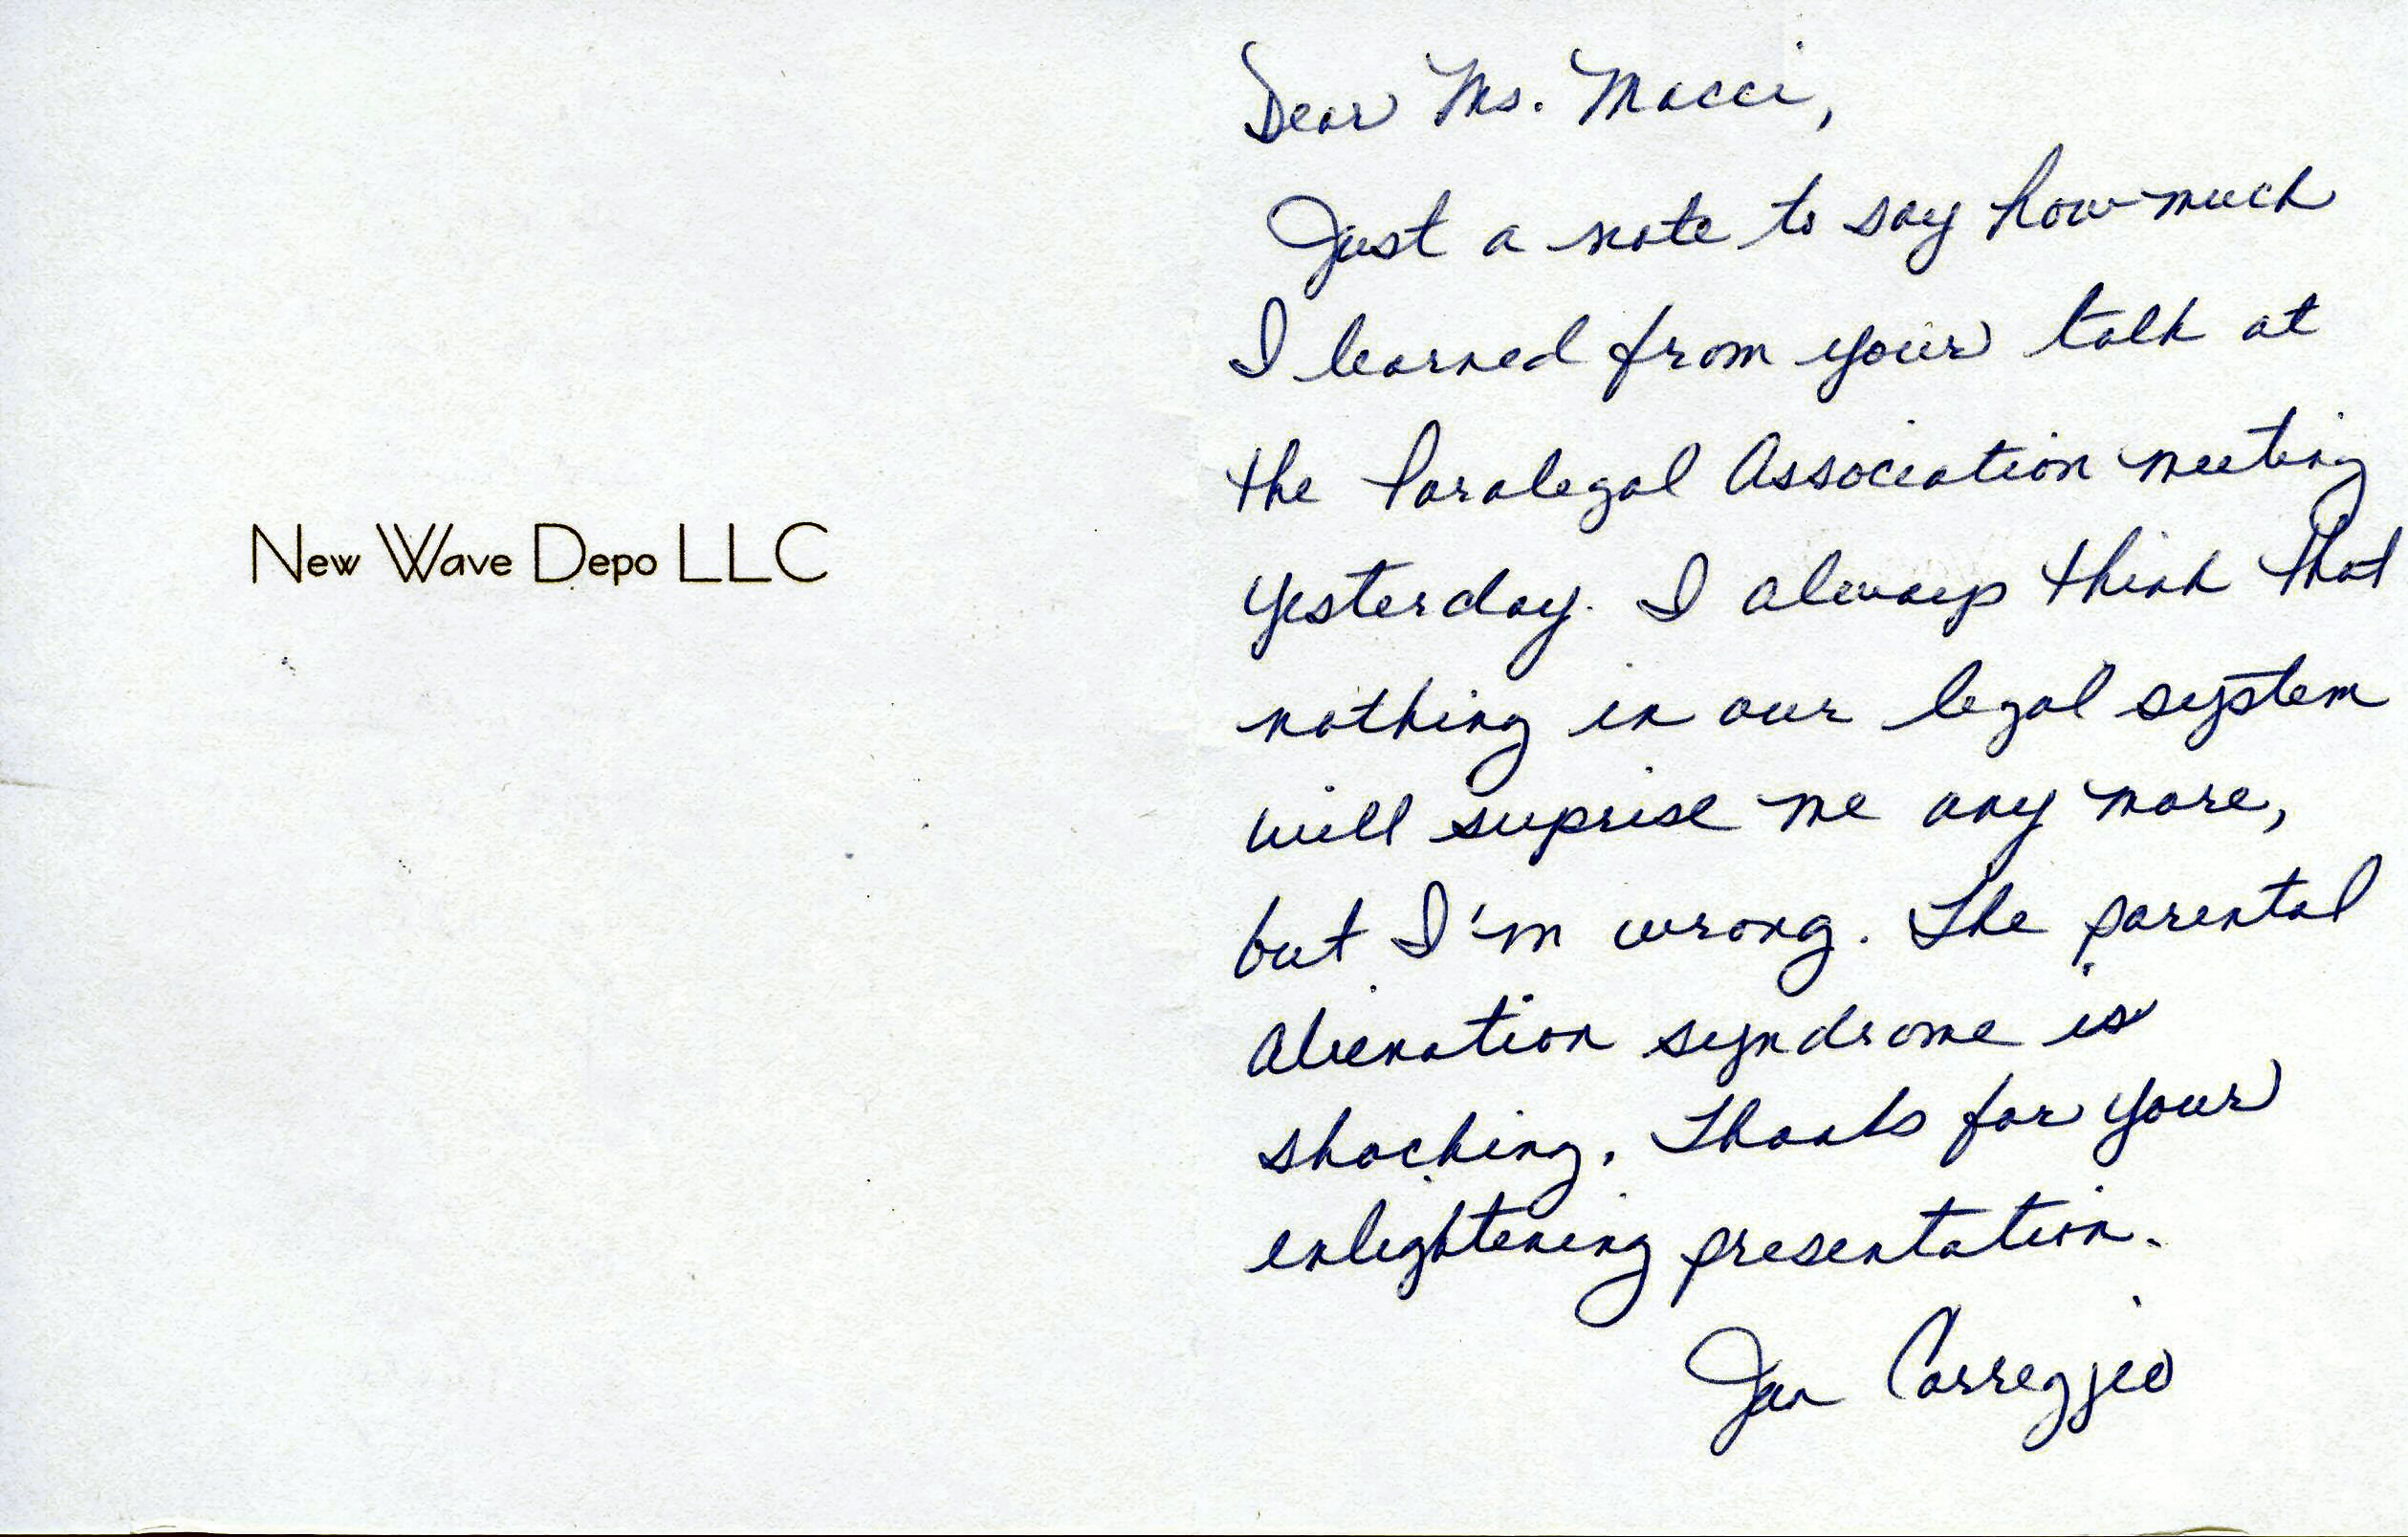 New Wave Depo LLC
Dear Ms. Macci,
Just a note to say how much
I learned from your talk at
the Paralegal Association meeting
yesterday. I always think that
nothing in our legal system
will suprise me any more,
but I'm wrong. The parental
alienation syndrome is
shocking. Thanks for your
enlightening presentation.
Jan Correggio